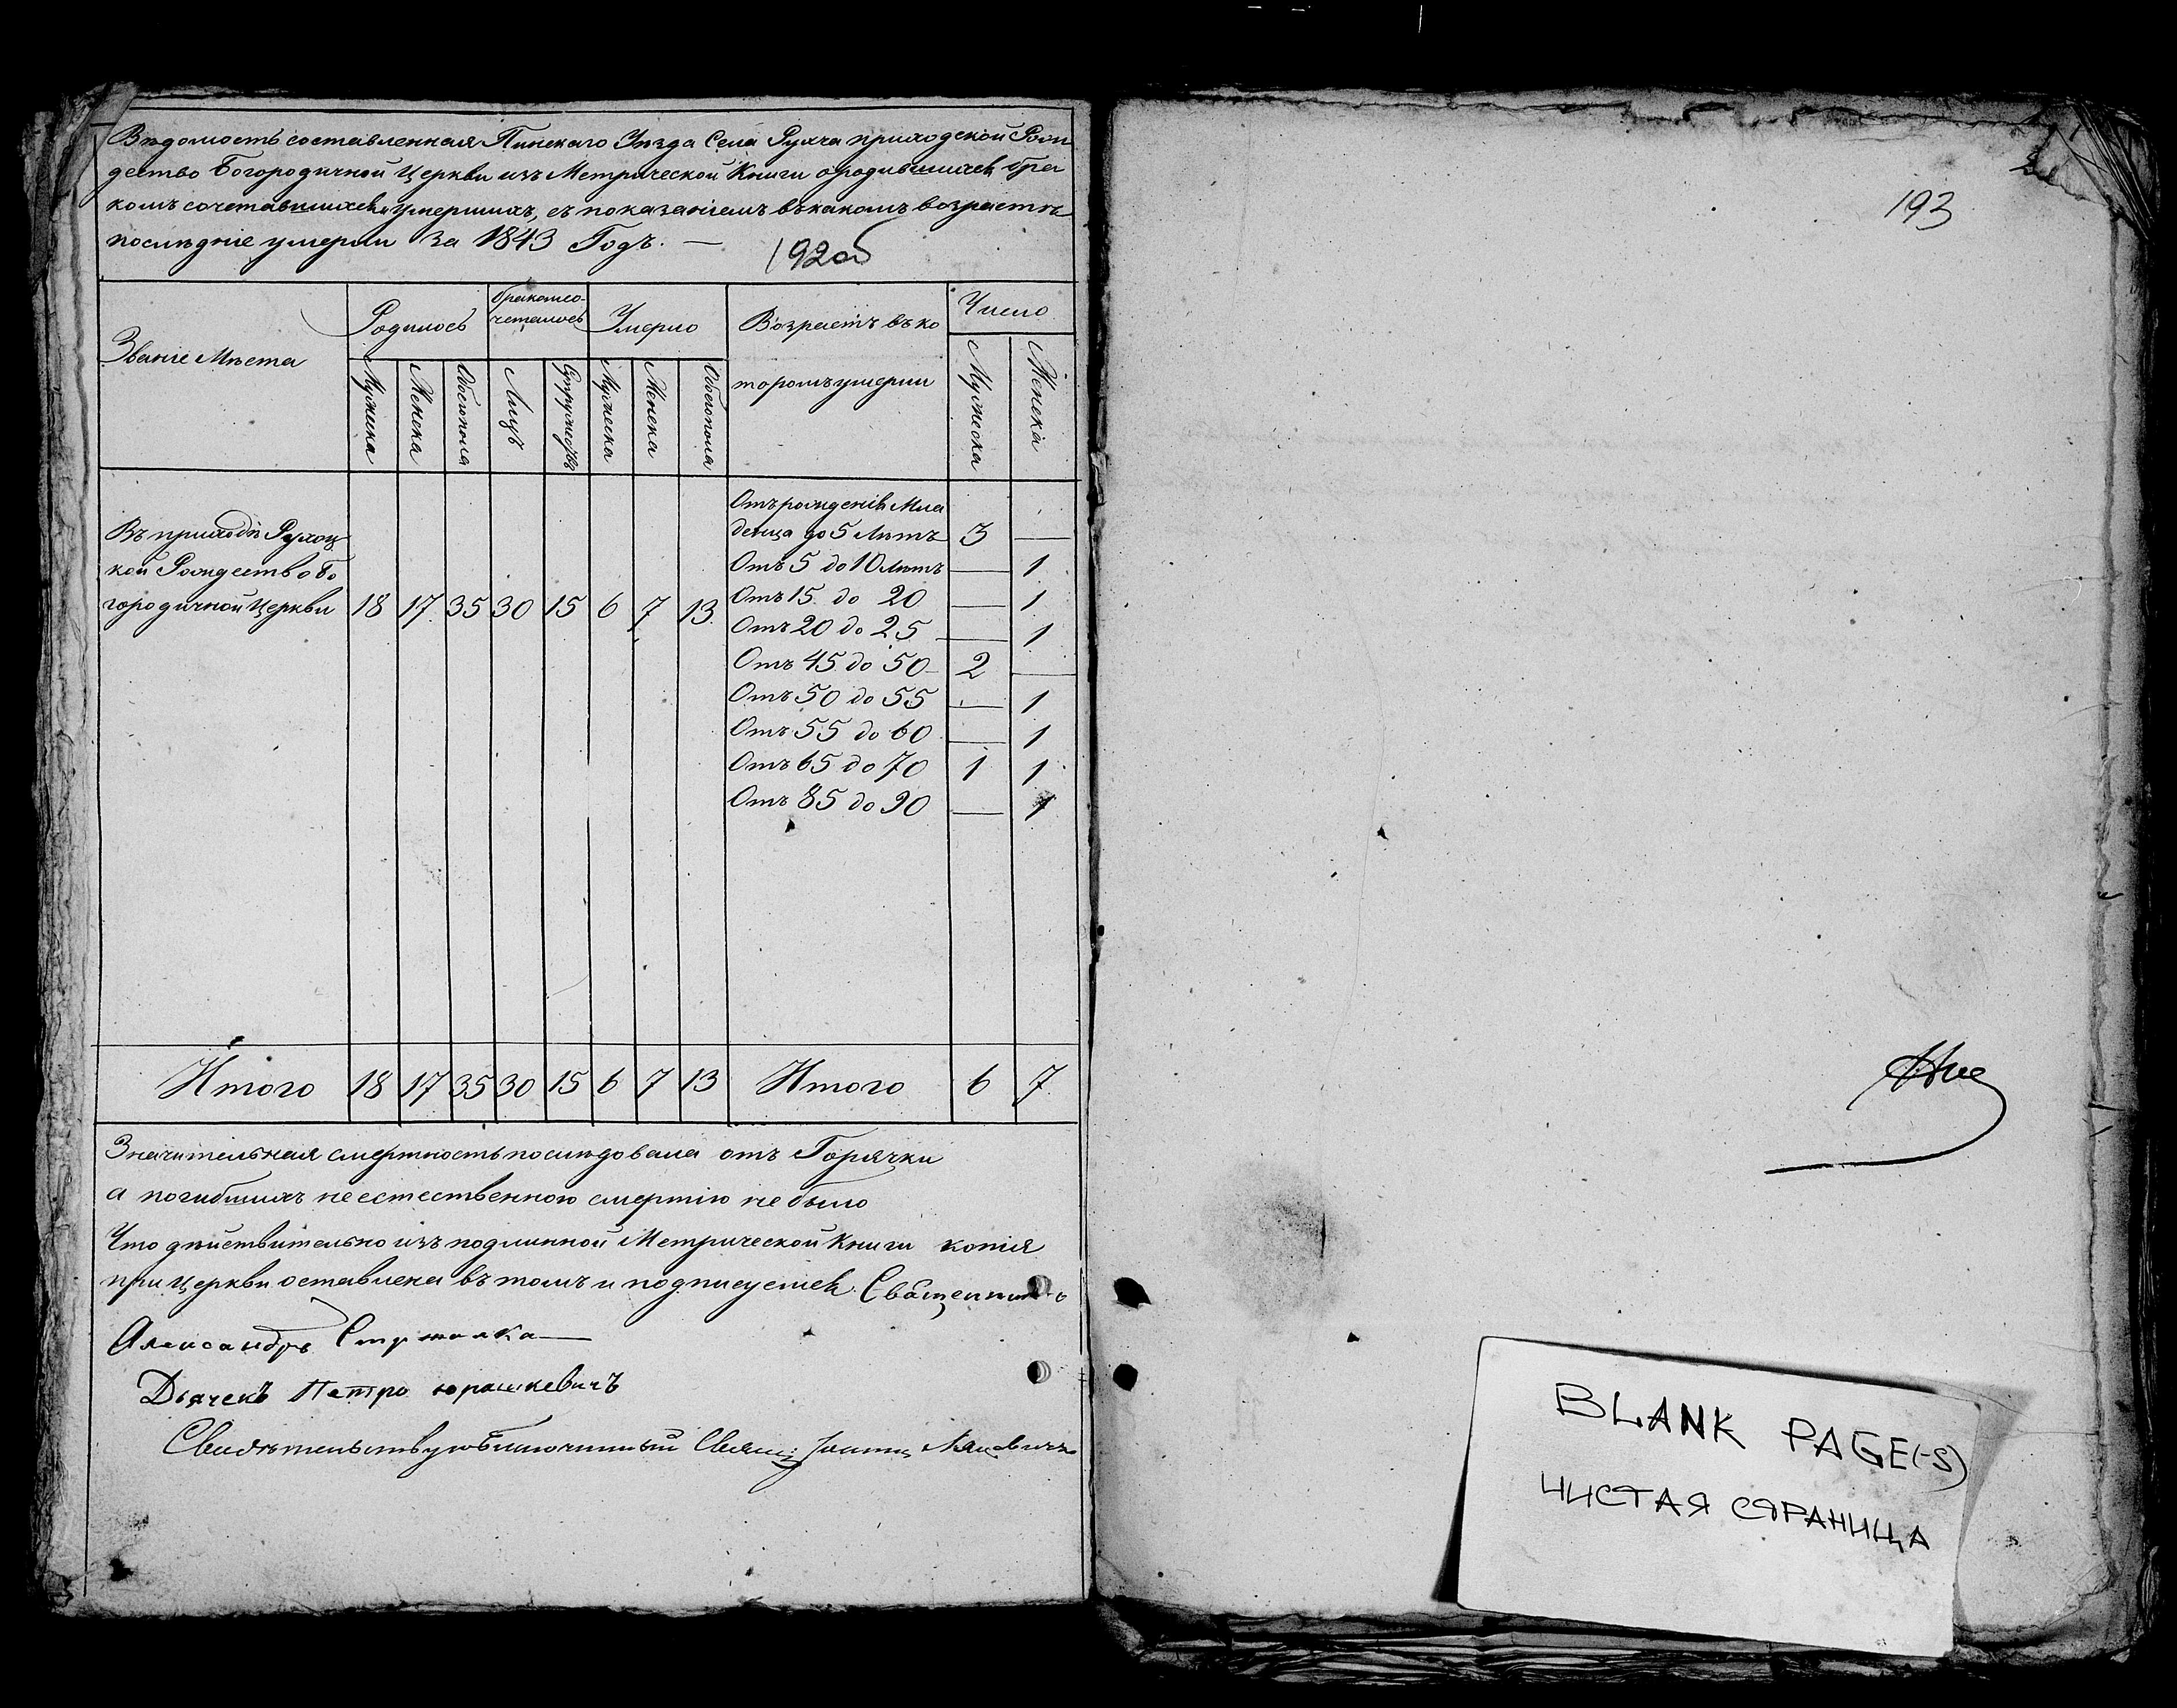 Вѣдомость составленная Пинскаго Уѣзда Села Рухча приходской Рож
дество Богородичной Церкви изъ Метрической Книги о родившихся бра
комъ сочетавшихся и Умершихъ, съ показаніемъ въ какомъ возрастѣ
послѣдніе умерли За 1843 Годъ. —
192об
Званіе Мѣста
Родилось
бракомсо-
четалось
Умерло
Возрастъ въ ко
торомъ умерли
Число
Мужеска Женска Обоегопола Лицъ Супружествъ Мужеска Женска Обоегопола Мужеска Женска
Въ приходѣ Рухоц
кой Рождество Бо
городичной Церкви 18 17 35 30 15 6 7 13
Отъ рожденія Мла
денца до 5 Лѣтъ 3 —
Отъ 5 до 10 Лѣтъ — 1
Отъ 15 до 20 — 1
Отъ 20 до 25 — 1
Отъ 45 до 50 2 —
Отъ 50 до 55 — 1
Отъ 55 до 60 — 1
Отъ 65 до 70 1 1
Отъ 85 до 90 — 1
Итого 18 17 35 30 15 6 7 13 Итого 6 7
Значительная смертность послѣдовала отъ Горячки
а погибшихъ неестественною смертію не было
Что дѣйствительно изъ подлинной Метрической Книги копія
при Церкви оставлена въ томъ и подписуемся Священникъ
Александръ
Дьячекъ Петро Юрашкевичъ
Свидѣтельствую Благочинный Свящ: Іоаннъ
193
BLANK PAGE(-S)
ЧИСТАЯ СТРАНИЦА